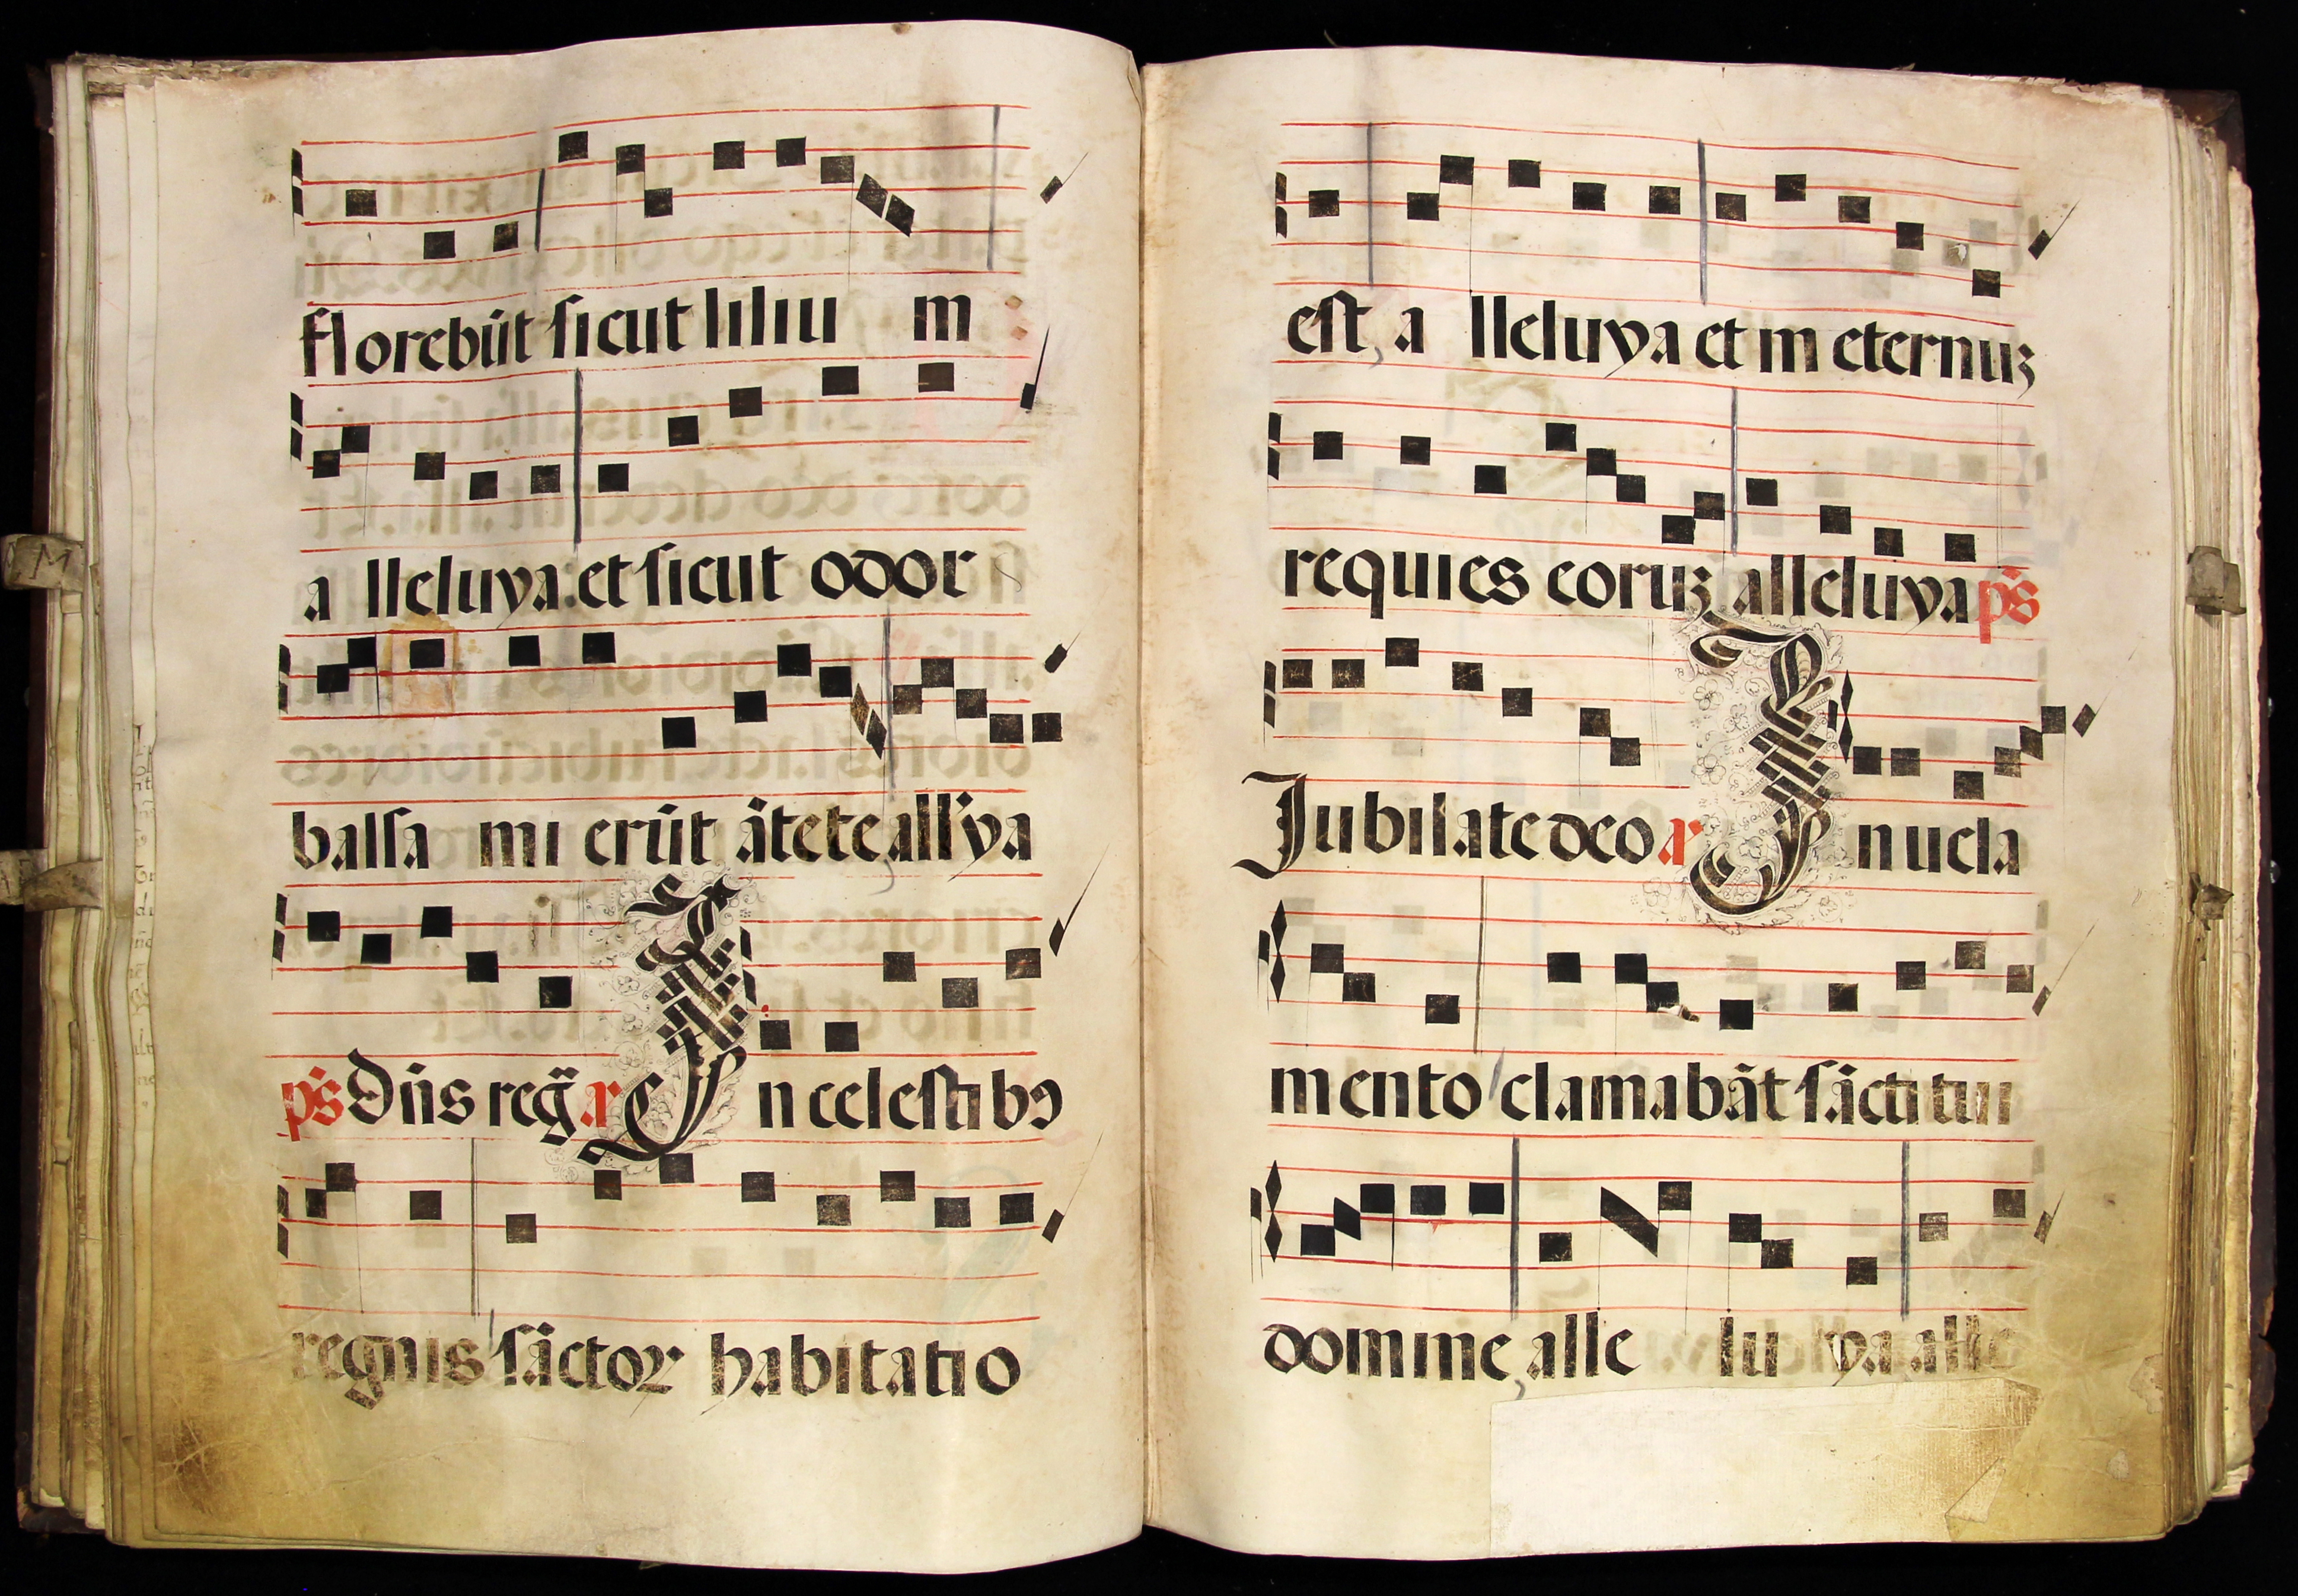 florebūt sicut liliu m
a lleluya: et sicut odor
balsa mi erūt āte te all'ya
ps Dn̄s reḡ a In celestibꝯ
regnis sāctoꝝ habitatio
est, a lleluya et in eternuꝫ
requies eoruꝫ alleluya ps
Jubilate deo a In vela
mento clamabāt sācti tui
domine, alle lu ya alle